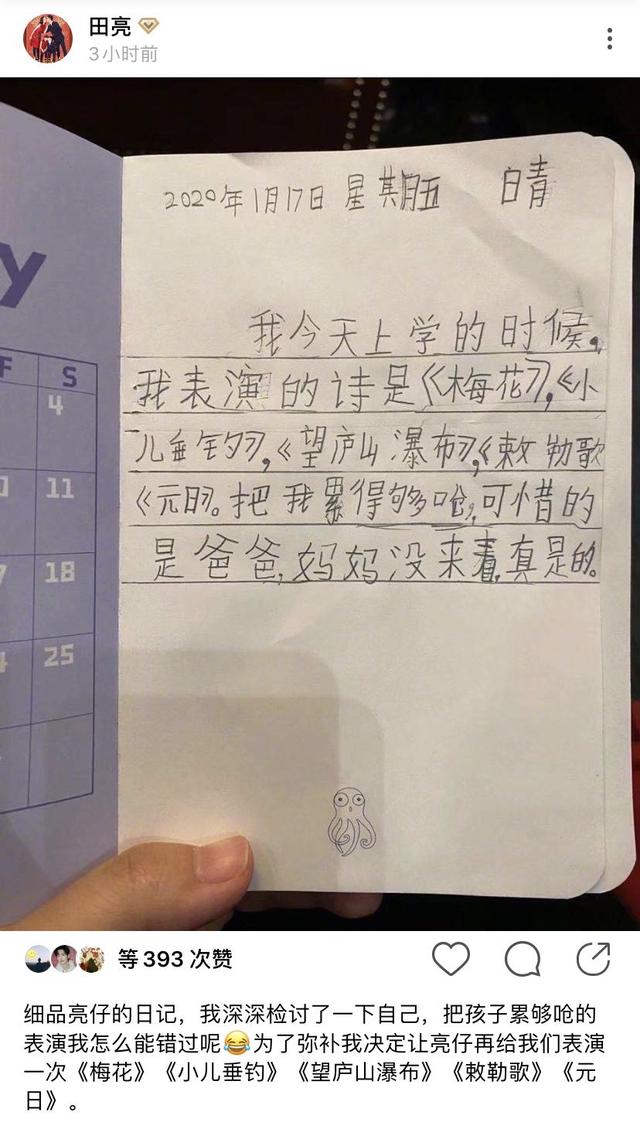 田亮
3小时前
y
F S
4
11
18
25
2020年1月17日 星期五 晴
我今天上学的时候,
我表演的诗是《梅花》,《小
儿垂钓》,《望庐山瀑布》,《敕勒歌
《元日》。把我累得够呛,可惜的
是爸爸,妈妈没来看,真是的。
等 393 次赞
细品亮仔的日记，我深深检讨了一下自己，把孩子累够呛的
表演我怎么能错过呢😂为了弥补我决定让亮仔再给我们表演
一次《梅花》《小儿垂钓》《望庐山瀑布》《敕勒歌》《元
日》。